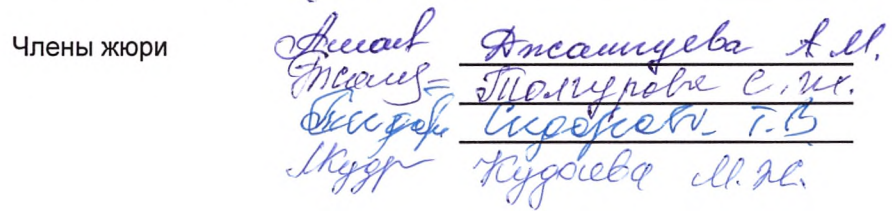 Члены жюри Джаппуева А.М.
Толгурова С. Ж.
Сидорова Т.В
Кудаева М.Ж.